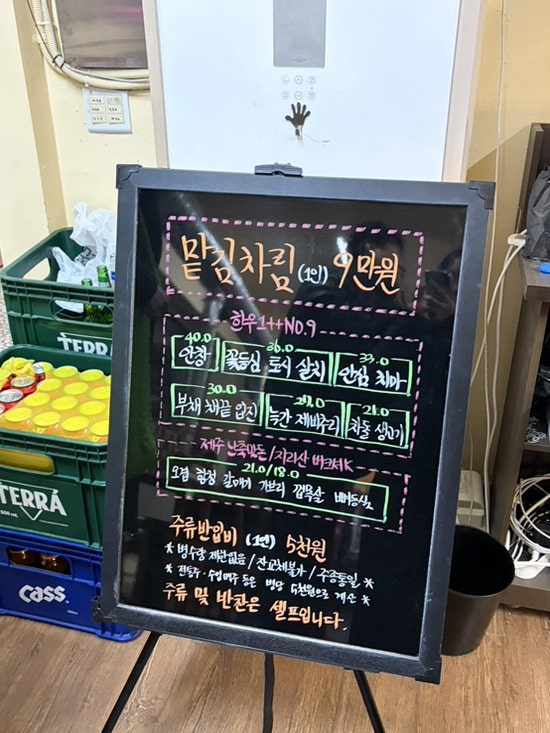 맡김차림 (1인) 9만원
한우1++NO.9
40.0 36.0 33.0
안창 꽃등심 토시 살치 안심 치마
30.0 24.0 21.0
부채 채끝 업진 늑간 제비추리 차돌 생고기
제주 난축맛돈/지리산 버크셔K
21.0/18.0
오겹 항정 갈매기 가브리 갭목살 뼈등심
주류반입비 (1인) 5천원
* 병수량 제한없음 / 잔교체불가 / 주종통일 *
* 전통주·수입맥주 등은 병당 5천원으로 계산 *
주류 및 반찬은 셀프입니다.
TERRA
TERRA
CASS